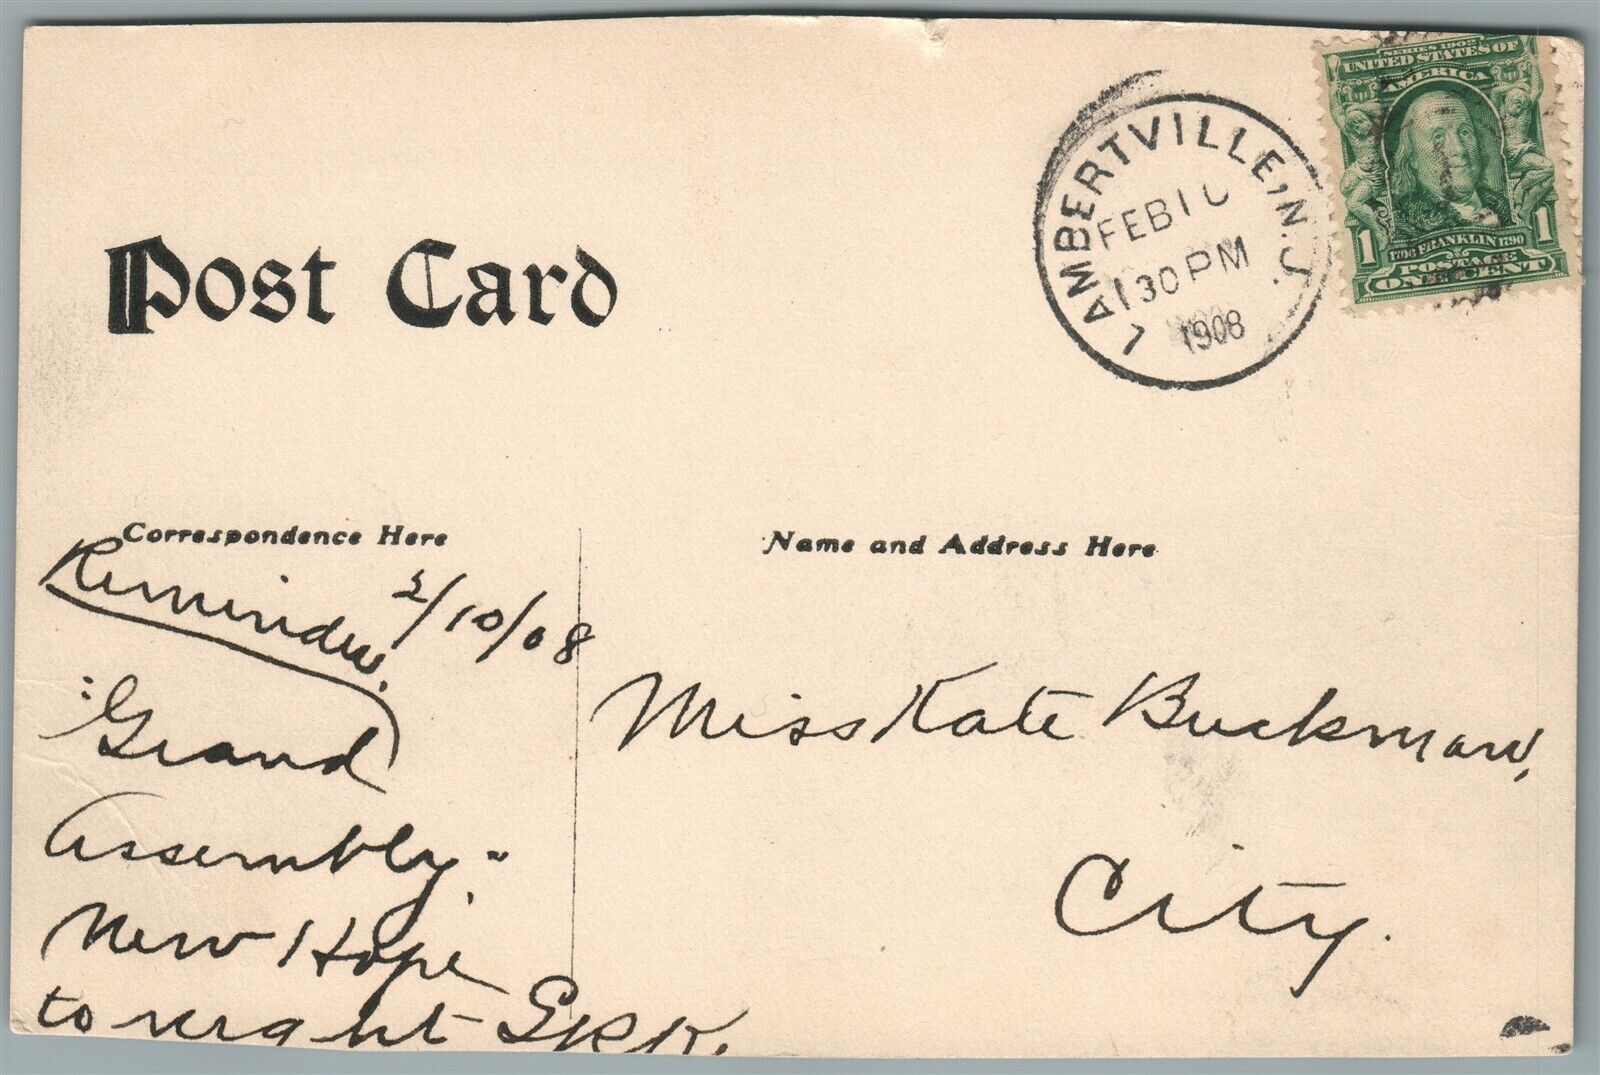 SERIES 1902
UNITED STATES OF
AMERICA
1 1706 FRANKLIN 1790 1
POSTAGE
ONE CENT
LAMBERTVILLE, N.J.
FEB 10
130 PM
1908
Post Card
Correspondence Here
Name and Address Here
Reminder. 2/10/08
"Grand
Assembly."
New Hope
to night
Miss Kate Buckman,
City.